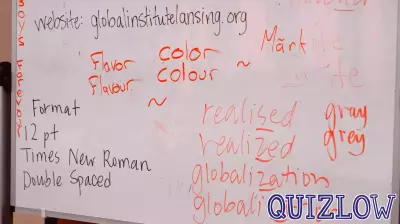 website: globalinstitutelansing.org
Flavor color ~ Märk
Flavour colour
~
Format
12 pt
Times New Roman
Double Spaced
realised gray
realized grey
globalization
QUIZLOW